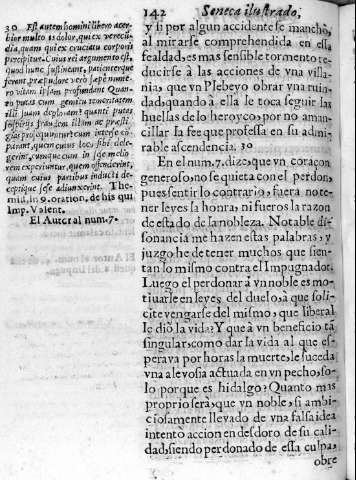 142 Seneca ilustrado,
30 Est autem homini libero acer-
bior multo is dolor, qui ex verecũ-
dia, quam qui ex cruciatu corporis
percipitur. Cuius rei argumento est,
quod hunc sustineant, patienterque
ferant præ pudore vero sæpe nume-
ro vitam ipsam profundant Quan-
to putas cum gemitu temeritatem
illi suam deplorent quanti putas
sapientis
giæ proequuntur cum inter se cõ-
parant, quem cuius loc, sibi dele-
gerint, cumque
rem experiuntur, quem offenderint,
quam cuius partibus inducti de-
ceptique sese adiunxerint. The-
mid. in 9. oration. de his qui
Imp. Valent.
El Auctor al num. 7.
y si por algun accidente se manchò,
al mirarse comprehendida en essa
fealdad, es mas sensible tormento re-
ducirse à las acciones de vna villa-
nia, que vn Plebeyo obrar vna ruin-
dad, quando à ella le toca seguir las
huellas de lo heroyco, por no aman-
cillar la fee que professa en su admi-
rable ascendencia. 30
En el num. 7. dize, que vn coraçon
generoso, no se quieta con el perdon,
pues sentir lo contrario, fuera no te-
ner leyes la honra, ni fueros la razon
de estado de la nobleza. Notable di-
sonancia me hazen estas palabras; y
juzgo he de tener muchos que sien-
tan lo mismo contra el Impugnador.
Luego el perdonar à vn noble es mo-
tiuarle en leyes del duelo, à que soli-
cite vengarse del mismo, que liberal
le diò la vida? Y que à vn beneficio tã
singular, como dar la vida al que es-
perava por horas la muerte, le suceda
vna alevosia actuada en vn pecho, so-
lo porque es hidalgo? Quanto mas
proprio serà, que vn noble, si ambi-
ciosamente llevado de vna falsa idea
intento accion en desdoro de su cali-
dad, siendo perdonado de esta culpa,
obre